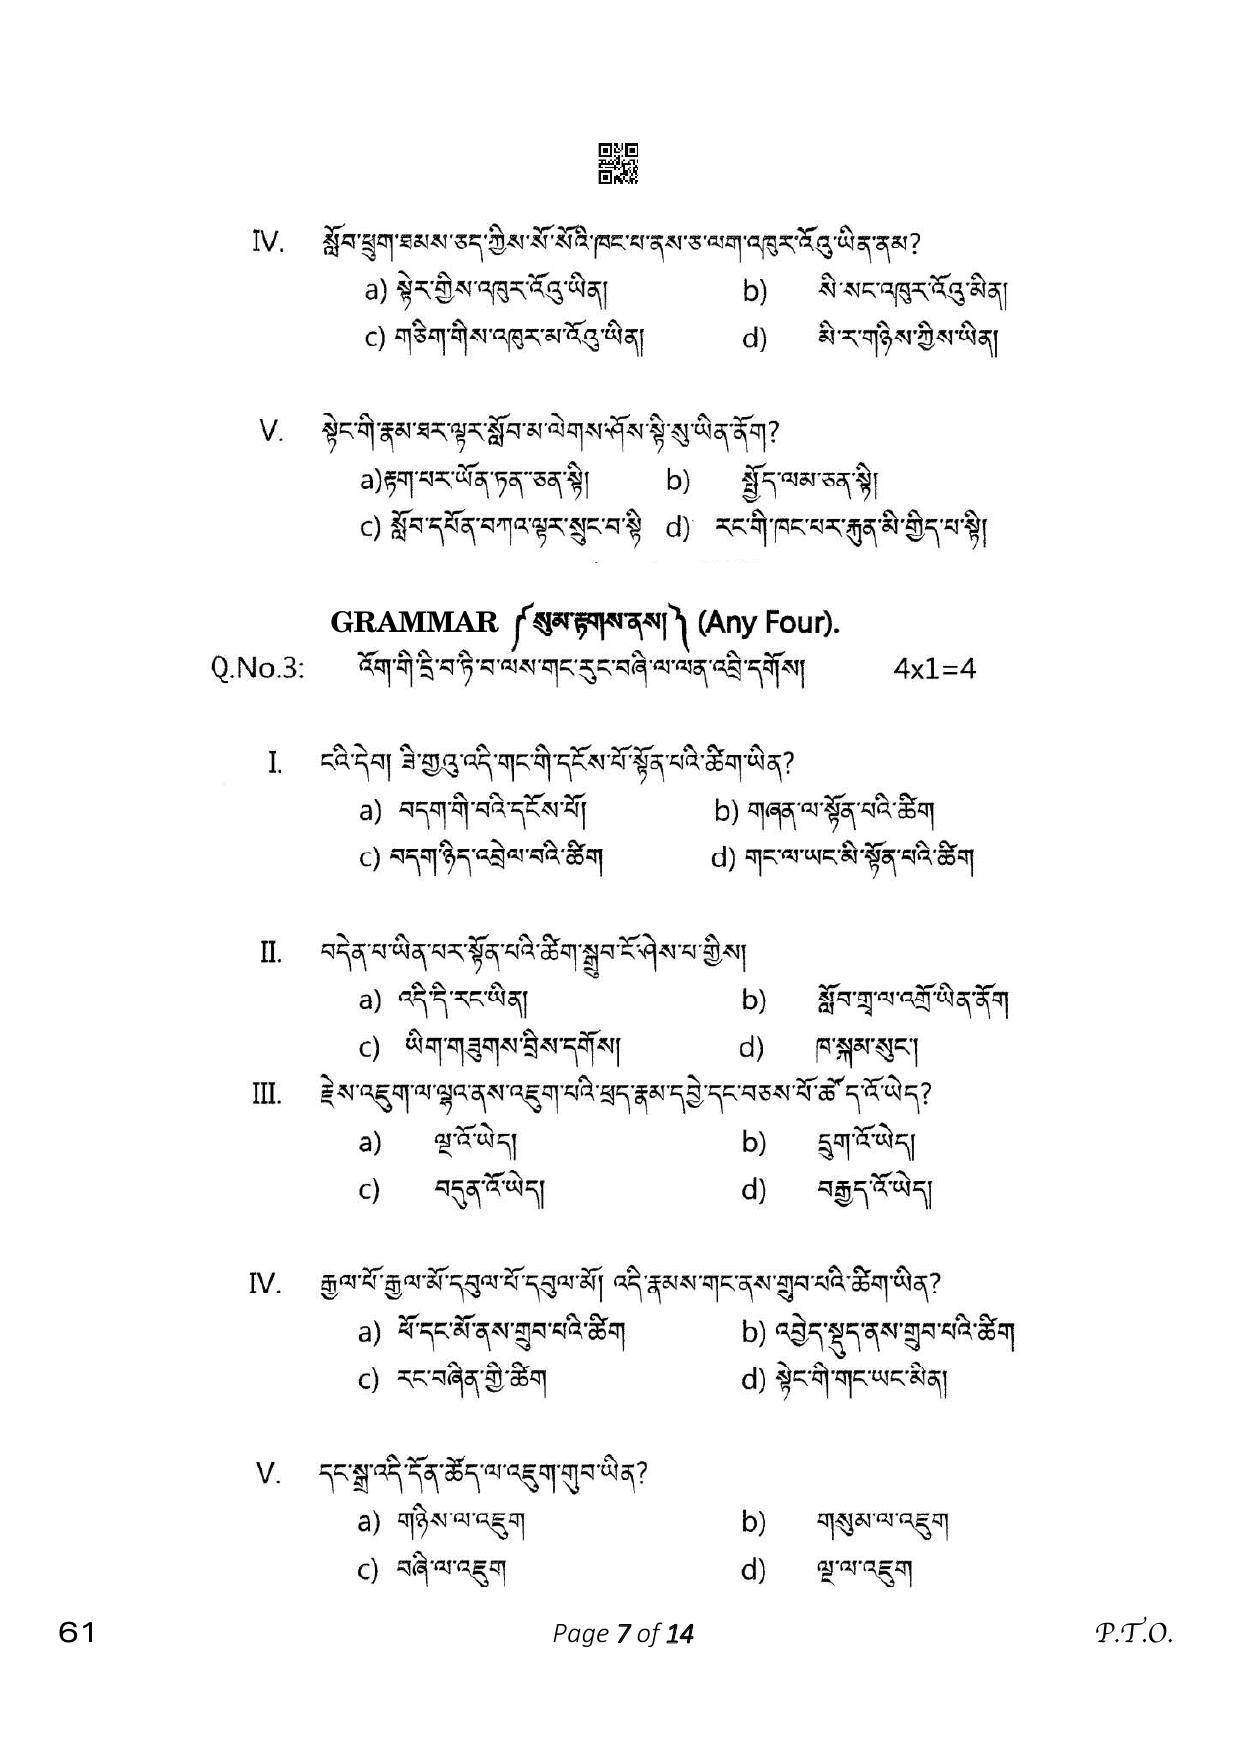 IV. སློབ་ཕྲུག་ཐམས་ཅད་ཀྱིས་སོ་སོའི་ཁང་པ་ནས་ཅ་ལག་འཁུར་འོའུ་ཡིན་ནམ?
a) སྟེར་གྱིས་འཁུར་འོའུ་ཡིན། b) སི་སང་འཁུར་འོའུ་མིན།
c) གཅིག་གིས་འཁུར་མ་འོའུ་ཡིན། d) མི་ར་གཉིས་ཀྱིས་ཡིན།
V. སྟེང་གི་རྣམ་ཐར་ལྟར་སློབ་མ་ལེགས་ཤོས་སྟི་སུ་ཡིན་ནོག?
a)རྟག་པར་ཡོན་ཏན་ཅན་སྟི། b) སྤྱོད་ལམ་ཅན་སྟི།
c) སློབ་དཔོན་བཀའ་ལྟར་སྲུང་བ་སྟི d) རང་གི་ཁང་པར་རྐུན་མི་གྱིད་པ་སྟི།
GRAMMAR ༼སུམ་རྟགས་ནས།༽ (Any Four).
Q.No.3: འོག་གི་དྲི་བ་ཏི་བ་ལས་གང་རུང་བཞི་ལ་ལན་འབྲི་དགོས། 4x1=4
I. ངའི་དེབ། ཟི་གྱའུ་འདི་གང་གི་དངོས་པོ་སྟོན་པའི་ཚིག་ཡིན?
a) བདག་གི་བའི་དངོས་པོ། b) གཞན་ལ་སྟོན་པའི་ཚིག
c) བདག་ཉིད་འབྲེལ་བའི་ཚིག d) གང་ལ་ཡང་མི་སྟོན་པའི་ཚིག
II. བདེན་པ་ཡིན་པར་སྟོན་པའི་ཚིག་སྒྲུབ་ངོ་ཤེས་པ་གྱིས།
a) འདི་དི་རང་ཡིན། b) སློབ་གྲྭ་ལ་འགྲོ་ཡིན་ནོག
c) ཡིག་གཟུགས་བྲིས་དགོས། d) ཁ་སྐམ་སུང་།
III. རྗེས་འཇུག་ལ་ལྷའ་ནས་འཇུག་པའི་ཕྲད་རྣམ་དབྱེ་དང་བཅས་པོ་ཚོ་ད་འོ་ཡེད?
a) ལྔ་འོ་ཡེད། b) དྲུག་འོ་ཡེད།
c) བདུན་འོ་ཡེད། d) བརྒྱད་འོ་ཡེད།
IV. རྒྱལ་པོ་རྒྱལ་མོ་དབུལ་པོ་དབུལ་མོ། འདི་རྣམས་གང་ནས་གྲུབ་པའི་ཚིག་ཡིན?
a) ཕོ་དང་མོ་ནས་གྲུབ་པའི་ཚིག b) འབྱེད་སྡུད་ནས་གྲུབ་པའི་ཚིག
c) རང་བཞིན་གྱི་ཚིག d) སྟེང་གི་གང་ཡང་མིན།
V. དང་སྒྲ་འདི་དོན་ཚོད་ལ་འཇུག་གུབ་ཡིན?
a) གཉིས་ལ་འཇུག b) གསུམ་ལ་འཇུག
c) བཞི་ལ་འཇུག d) ལྔ་ལ་འཇུག
61 Page 7 of 14 P.T.O.